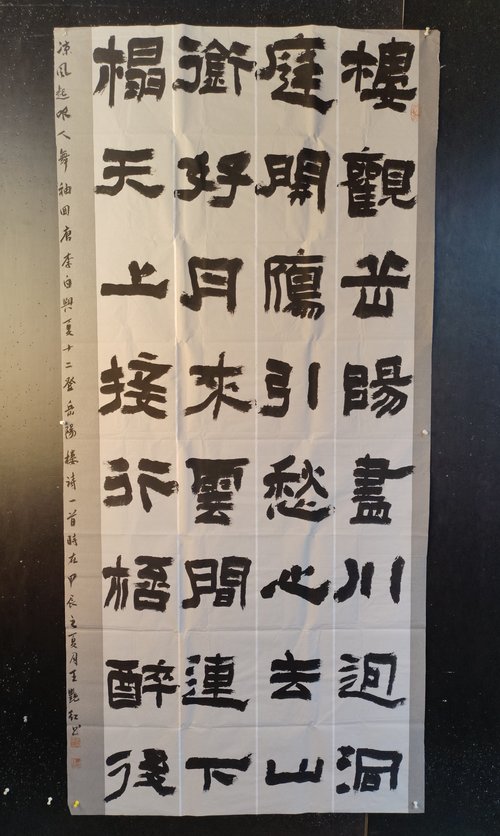 樓觀岳陽盡川迥洞
庭開鴈引愁心去山
銜好月來雲間連下
榻天上接行桮醉後
涼風起吹人舞袖回唐李白與夏十二登岳陽樓詩一首時在甲辰之夏月王艷紅书